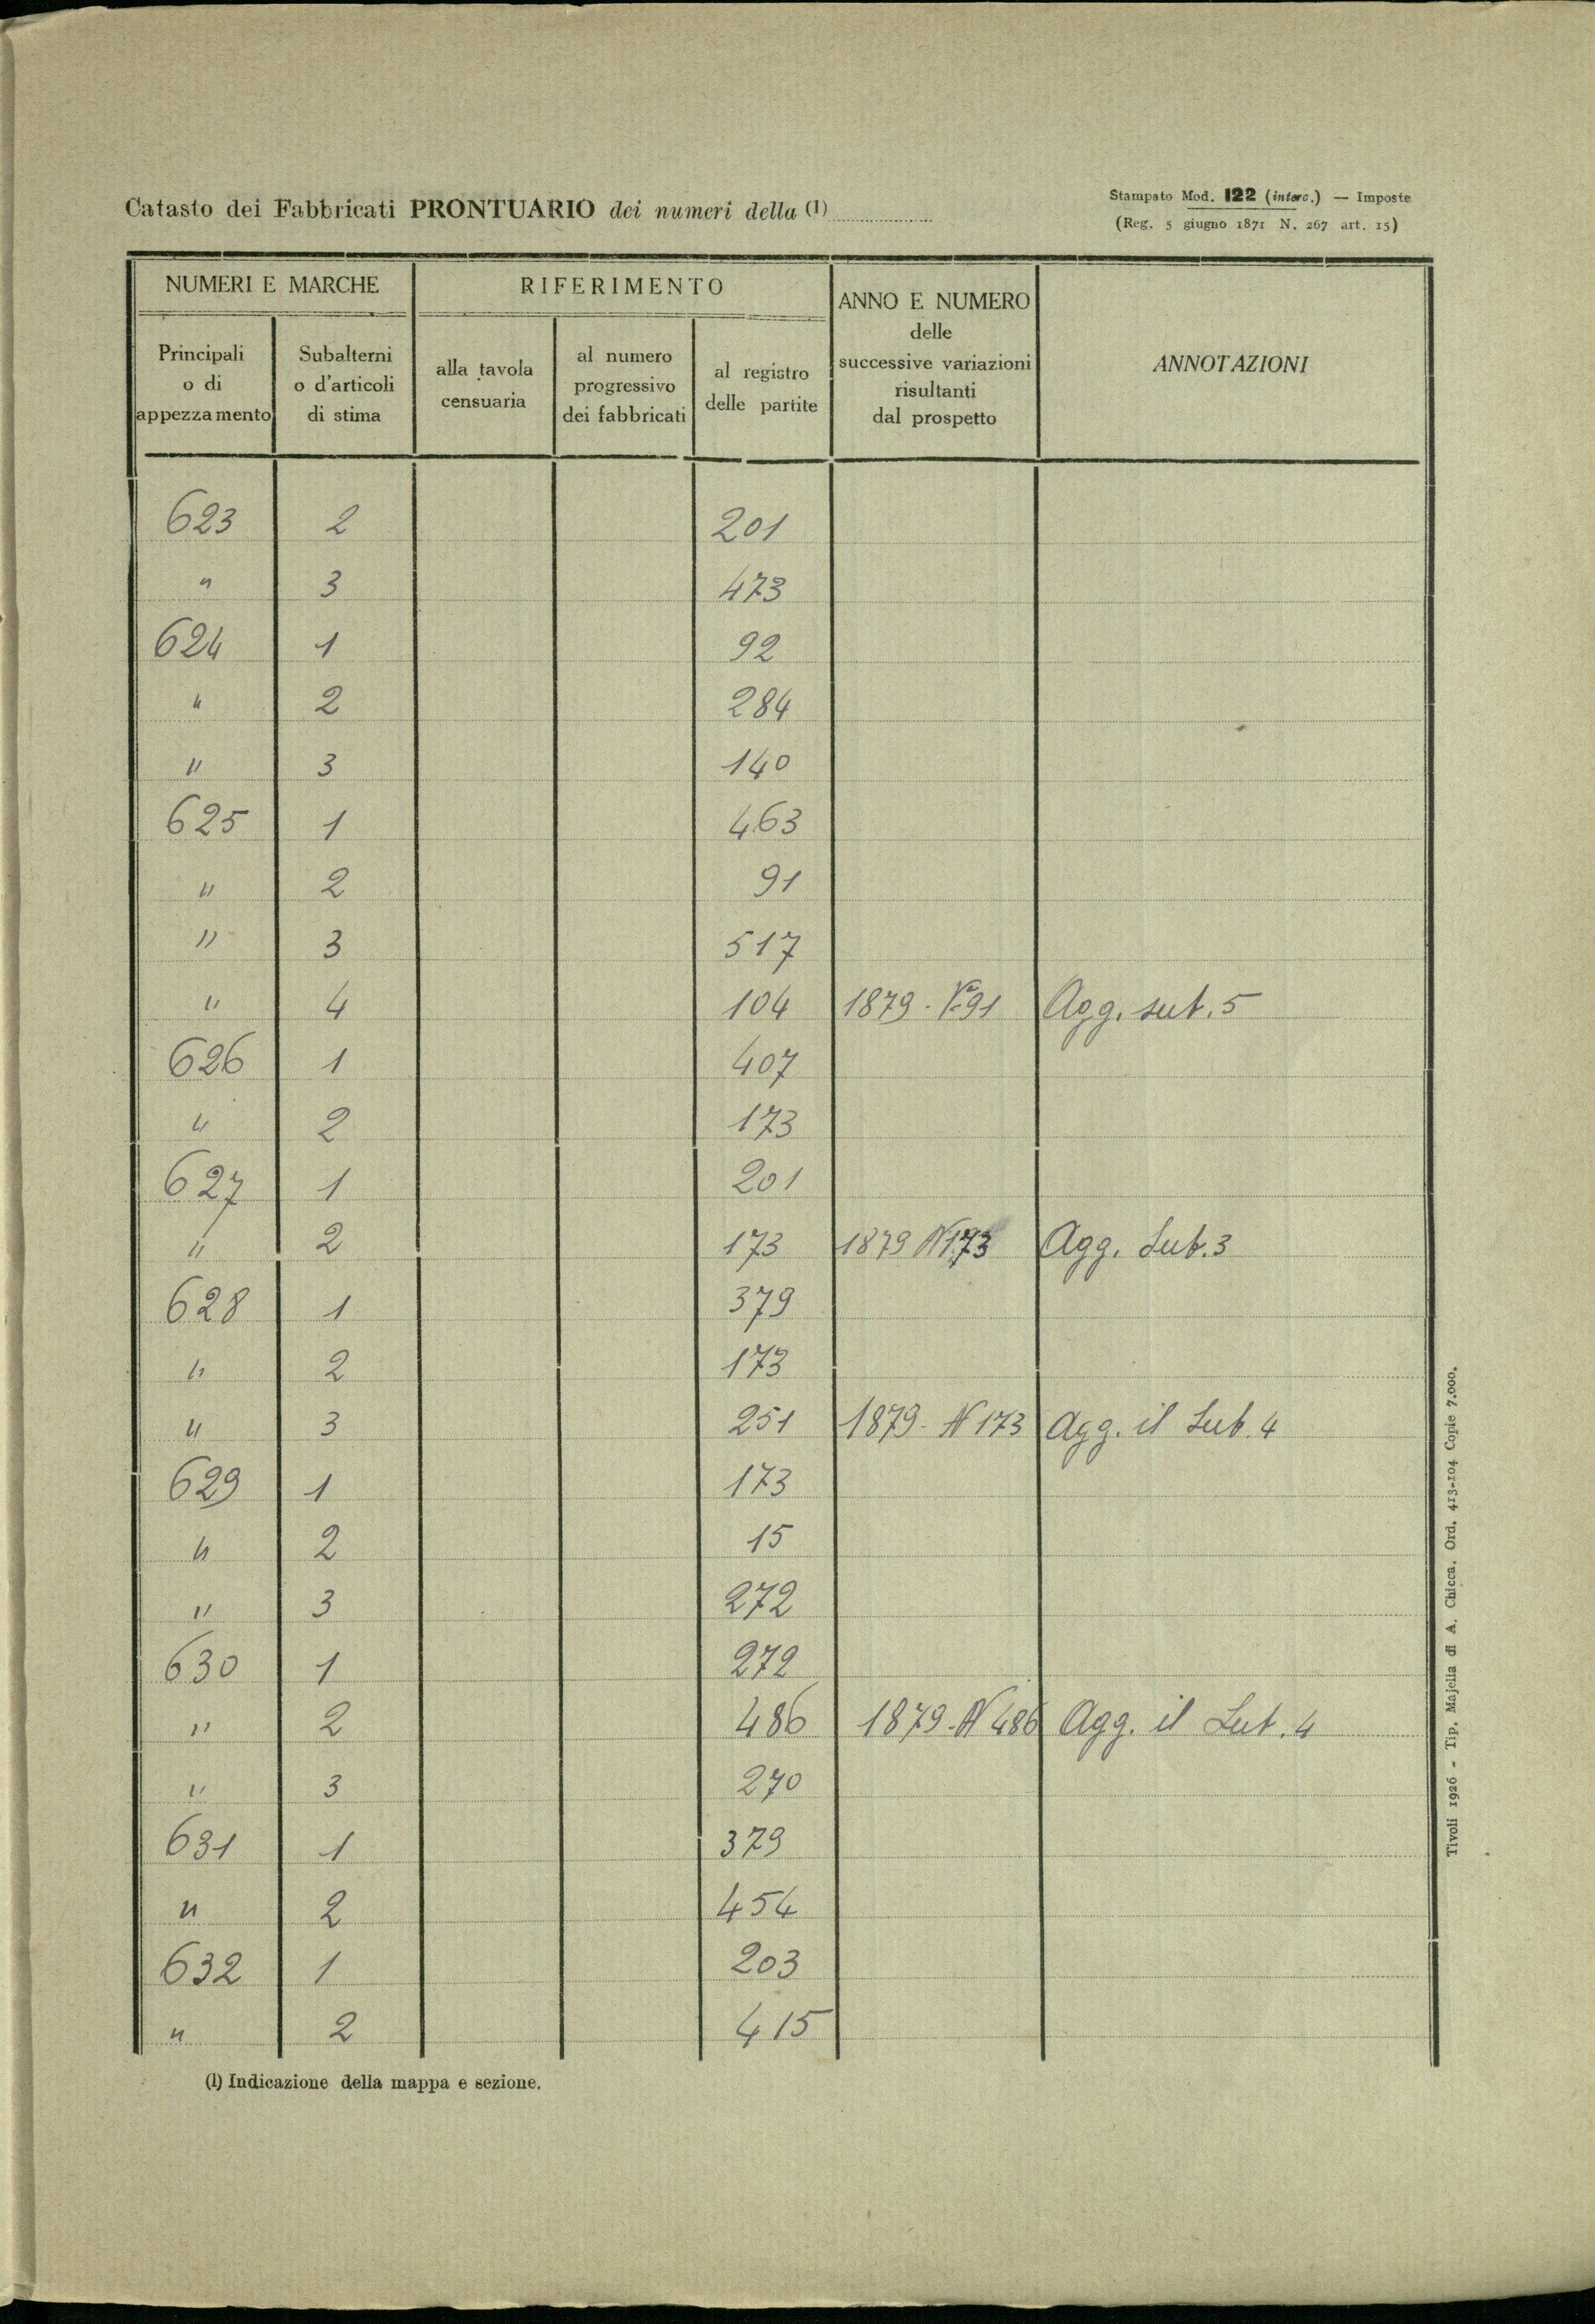 Catasto dei Fabbricati PRONTUARIO dei numeri della (1)
Stampato Mod. 122 (interc.) — Imposte
(Reg. 5 giugno 1871 N. 267 art. 15)
NUMERI E MARCHE
RIFERIMENTO
ANNO E NUMERO
delle
successive variazioni
risultanti
dal prospetto
ANNOTAZIONI
Principali
o di
appezzamento
Subalterni
o d'articoli
di stima
alla tavola
censuaria
al numero
progressivo
dei fabbricati
al registro
delle partite
623 2 201
" 3 473
624 1 92
" 2 284
" 3 140
625 1 463
" 2 91
" 3 517
" 4 104 1879 - 91 Agg. sub. 5
626 1 407
" 2 173
627 1 201
" 2 173 1879 N 173 Agg. Sub. 3
628 1 379
" 2 173
" 3 251 1879 - N 173 Agg. il Sub. 4
629 1 173
" 2 15
" 3 272
630 1 272
" 2 486 1879 - N 486 Agg. il Sub. 4
" 3 270
631 1 379
" 2 454
632 1 203
" 2 415
(1) Indicazione della mappa e sezione.
Tivoli 1926 - Tip. Majella di A. Chicca. Ord. 413-104 Copie 7.000.